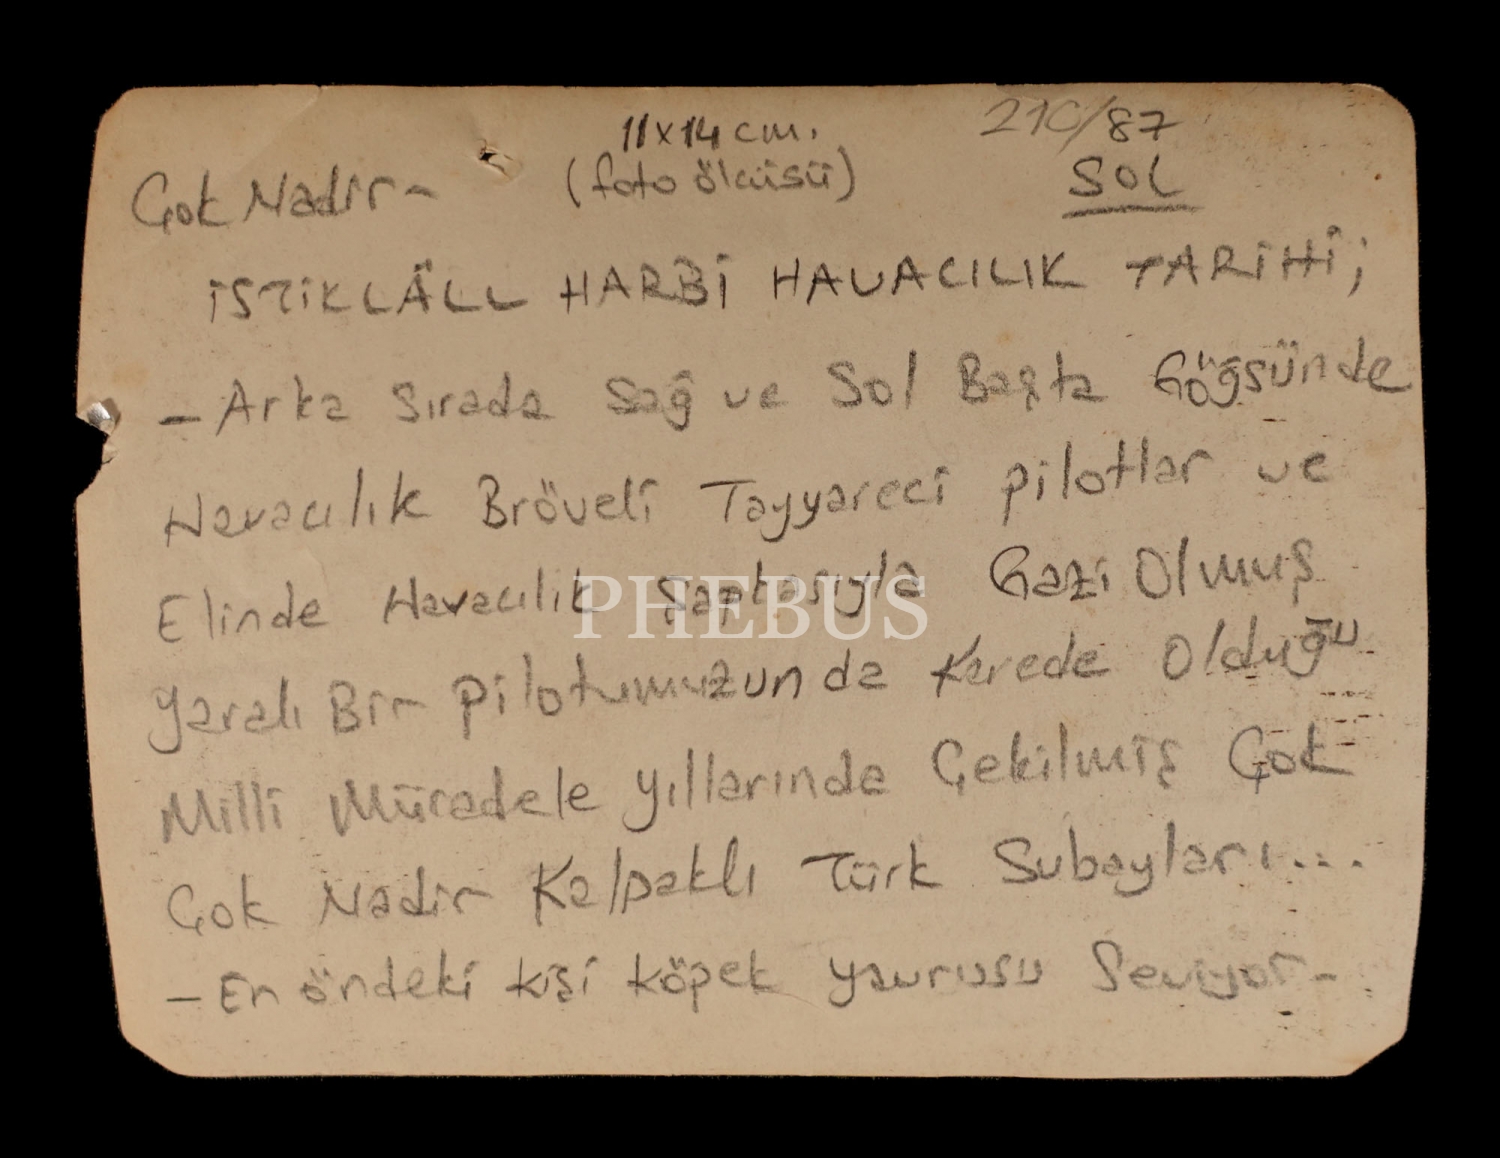 11x14 cm. 210/87
Çok Nadir- (foto ölçüsü) SOL
İSTİKLÂLL HARBİ HAVACILIK TARİHİ;
- Arka Sırada Sağ ve Sol Başta Göğsünde
Havacılık Bröveli Tayyareci pilotlar ve
Elinde Havacılık Şapkasıyla Gazi Olmuş
yaralı Bir pilotumuzunda Karede Olduğu
Milli Mücadele yıllarında Çekilmiş Çok
Çok Nadir Kalpaklı Türk Subayları...
- En öndeki kişi köpek yavrusu Seviyor-
PHEBUS